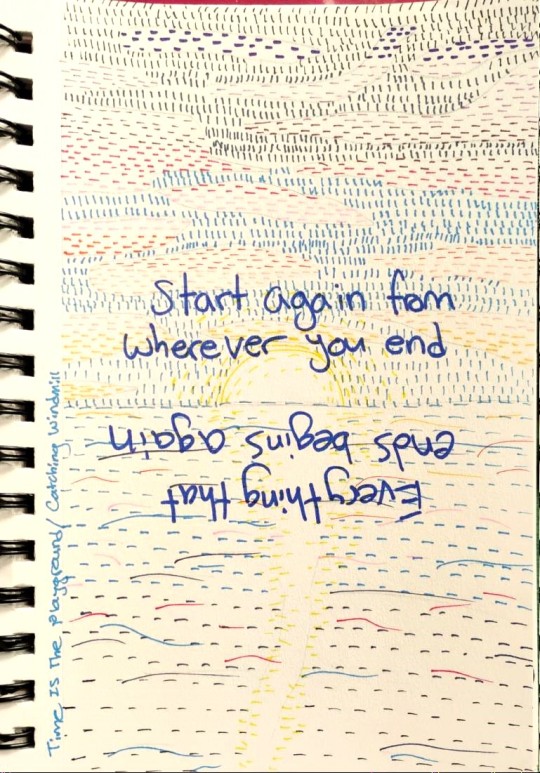 Start again from
wherever you end
Everything that
ends begins again
Time Is The playground/ Catching Windmill